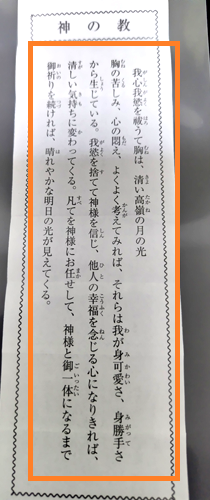 神の教
我心我慾を祓うて胸は、清い高嶺の月の光
胸の苦しみ、心の悶え、よくよく考えてみれば、それらは我が身可愛さ、身勝手さ
から生じている。我慾を捨てて神様を信じ、他人の幸福を念じる心になりきれば、
清しい気持ちに変わってくる。凡てを神様にお任せして、神様と御一体になるまで
御祈りを続ければ、晴れやかな明日の光が見えてくる。